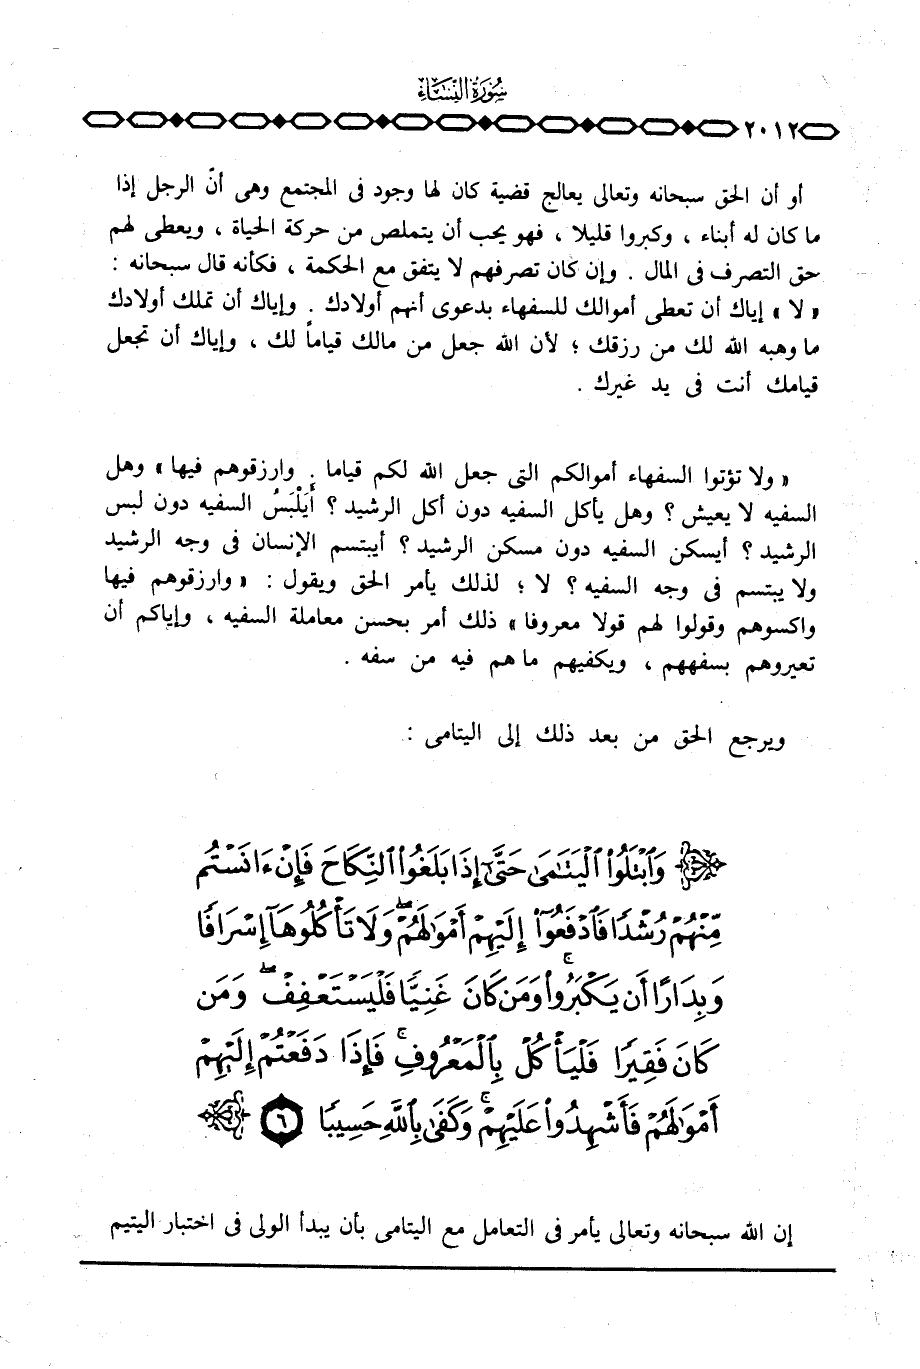 سُورَةُ النِّسَاءِ
٢٠١٢
أو أن الحق سبحانه وتعالى يعالج قضية كان لها وجود فى المجتمع وهى أنّ الرجل إذا
ما كان له أبناء ، وكبروا قليلا ، فهو يحب أن يتملص من حركة الحياة ، ويعطى لهم
حق التصرف فى المال . وإن كان تصرفهم لا يتفق مع الحكمة ، فكأنه قال سبحانه :
« لا » إياك أن تعطى أموالك للسفهاء بدعوى أنهم أولادك . وإياك أن تملك أولادك
ما وهبه الله لك من رزقك ؛ لأن الله جعل من مالك قياماً لك ، وإياك أن تجعل
قيامك أنت فى يد غيرك .
« ولا تؤتوا السفهاء أموالكم التى جعل الله لكم قياما . وارزقوهم فيها » وهل
السفيه لا يعيش ؟ وهل يأكل السفيه دون أكل الرشيد ؟ أَيَلْبَسُ السفيه دون لبس
الرشيد ؟ أيسكن السفيه دون مسكن الرشيد ؟ أيبتسم الإنسان فى وجه الرشيد
ولا يبتسم فى وجه السفيه ؟ لا ؛ لذلك يأمر الحق ويقول : « وارزقوهم فيها
واكسوهم وقولوا لهم قولا معروفا » ذلك أمر بحسن معاملة السفيه ، وإياكم أن
تعيروهم بسفههم ، ويكفيهم ما هم فيه من سفه .
ويرجع الحق من بعد ذلك إلى اليتامى :
وَٱبْتَلُوا۟ ٱلْيَتَـٰمَىٰ حَتَّىٰٓ إِذَا بَلَغُوا۟ ٱلنِّكَاحَ فَإِنْ ءَانَسْتُم
مِّنْهُمْ رُشْدًا فَٱدْفَعُوٓا۟ إِلَيْهِمْ أَمْوَٰلَهُمْ ۖ وَلَا تَأْكُلُوهَآ إِسْرَافًا
وَبِدَارًا أَن يَكْبَرُوا۟ ۚ وَمَن كَانَ غَنِيًّا فَلْيَسْتَعْفِفْ ۖ وَمَن
كَانَ فَقِيرًا فَلْيَأْكُلْ بِٱلْمَعْرُوفِ ۚ فَإِذَا دَفَعْتُمْ إِلَيْهِمْ
أَمْوَٰلَهُمْ فَأَشْهِدُوا۟ عَلَيْهِمْ ۚ وَكَفَىٰ بِٱللَّهِ حَسِيبًا ٦
إن الله سبحانه وتعالى يأمر فى التعامل مع اليتامى بأن يبدأ الولى فى اختبار اليتيم